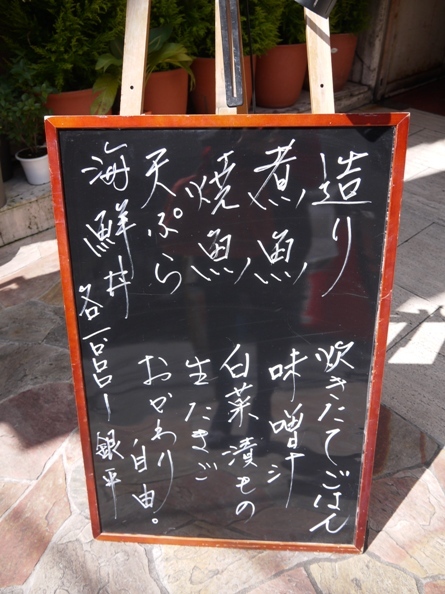 造り
煮魚
焼魚
天ぷら
海鮮丼
炊きたてごはん
味噌汁
白菜漬もの
生たまご
おかわり
自由。
銀平